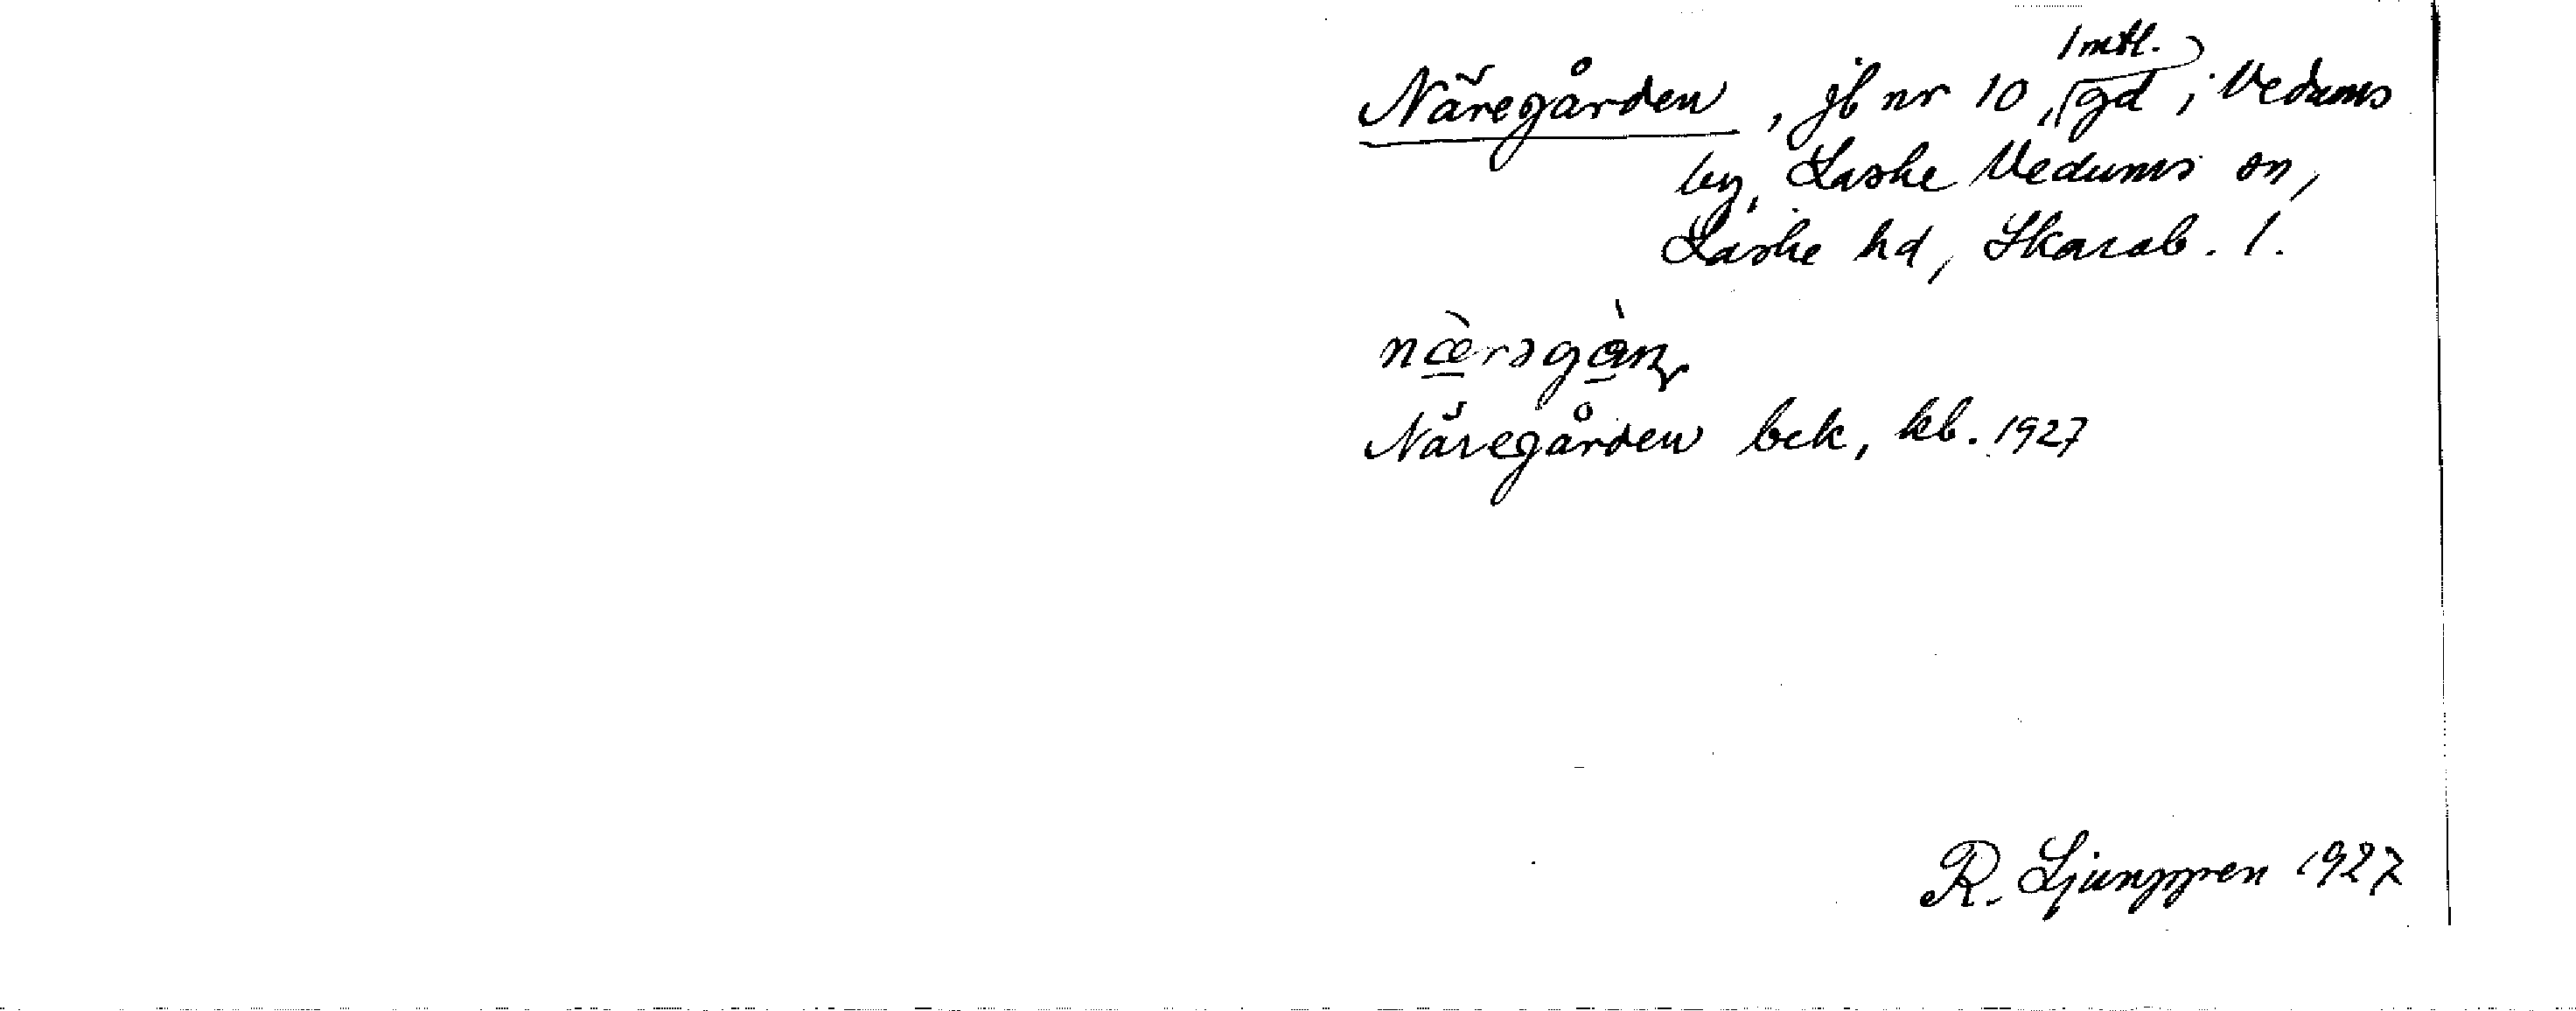 1 mtl.
Näregården, jb nr 10, gd i Vedums
by, Laske Vedums sn,
Laske hd, Skarab. l.
næ̀rəgàɳ
Näregården bek, kb. 1927
R. Ljunggren 1927